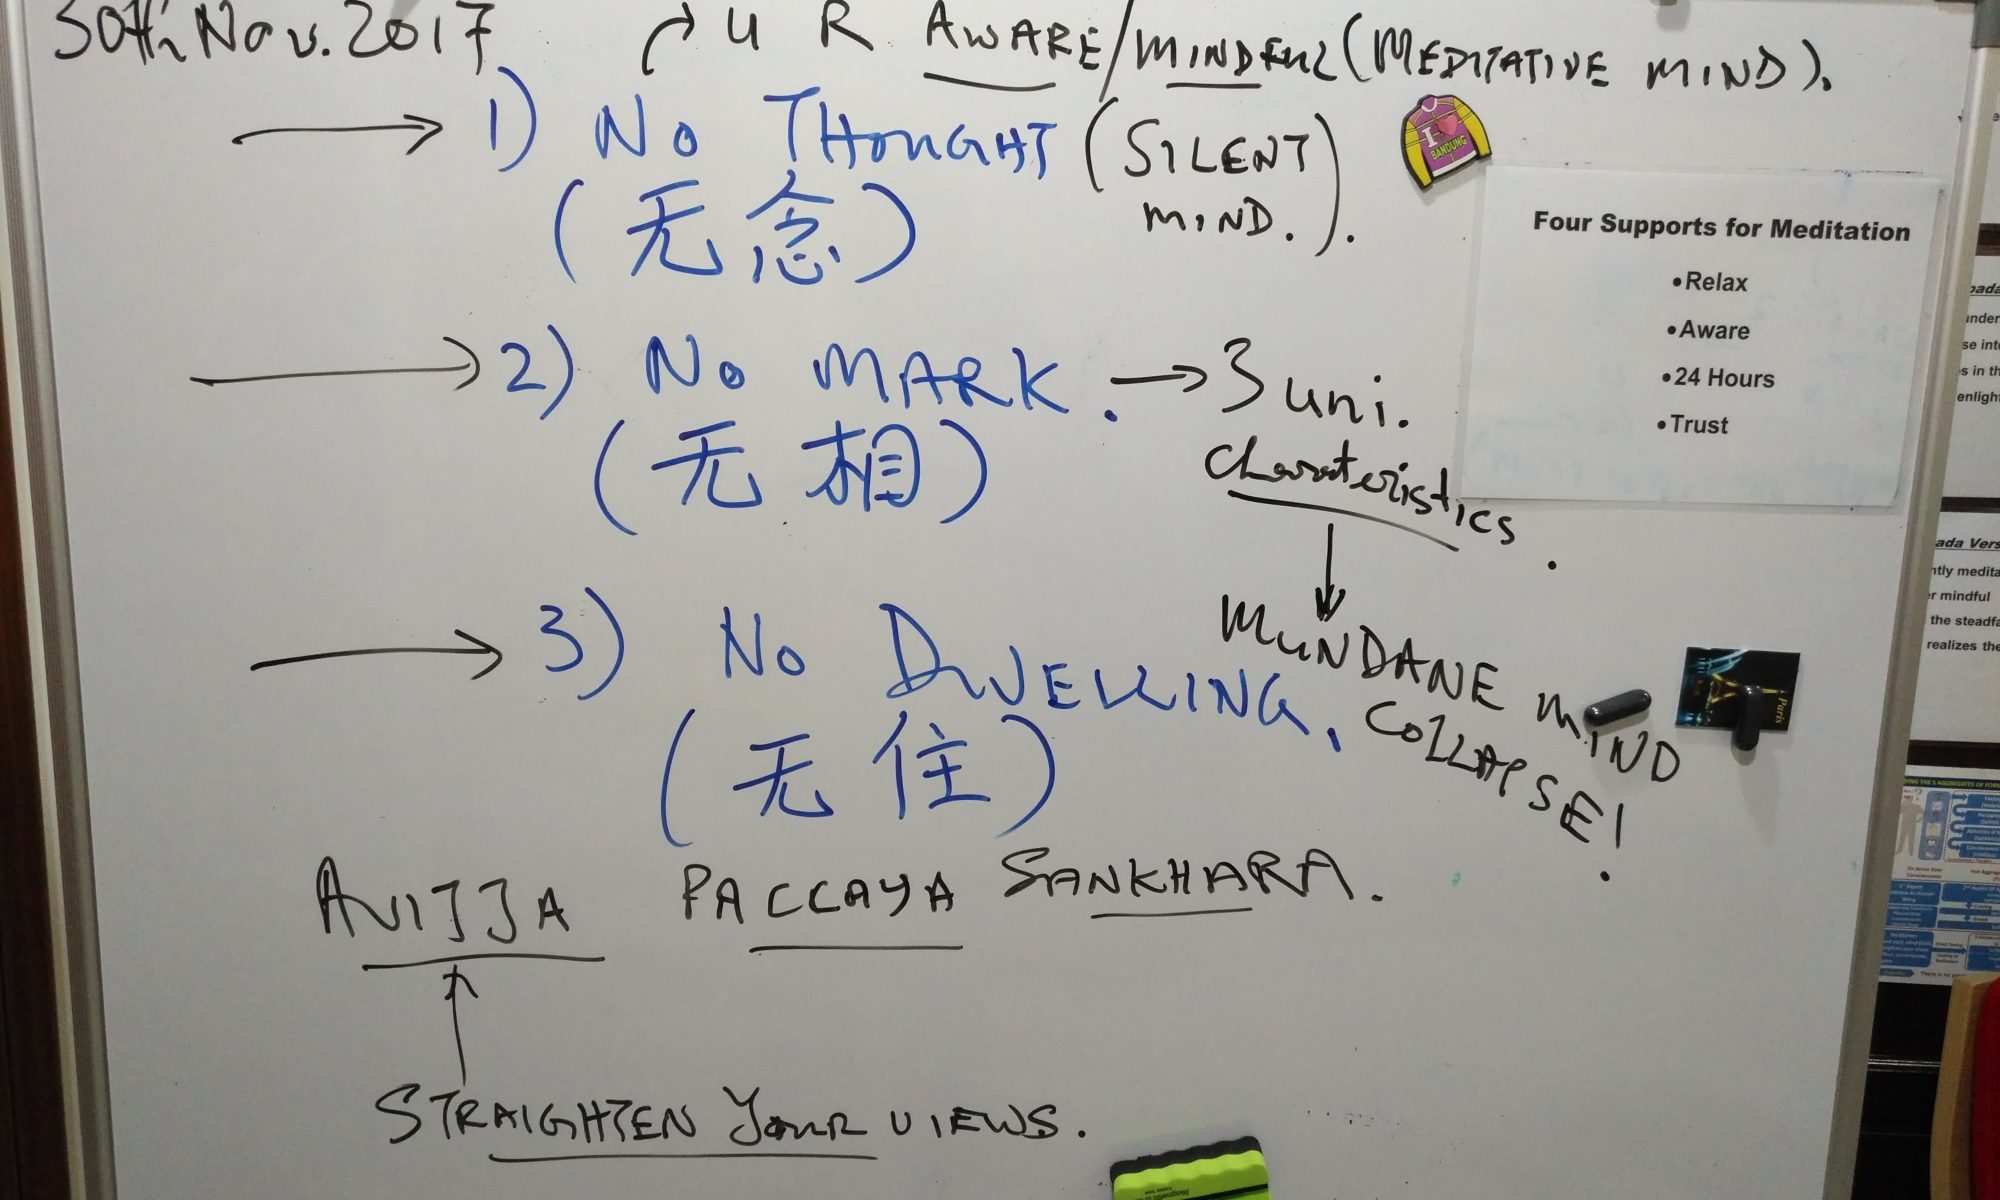 30th Nov. 2017
U R AWARE/MINDFUL (MEDITATIVE MIND).
1) NO THOUGHT (SILENT MIND.).
(无念)
2) NO MARK. → 3 uni. Charateristics.
(无相)
MUNDANE MIND COLLAPSE!
3) NO DWELLING.
(无住)
AVIJJA PACCAYA SANKHARA.
STRAIGHTEN YOUR VIEWS.
I ♥ BANDUNG
Four Supports for Meditation
•Relax
•Aware
•24 Hours
•Trust
Paris
under
se int
s in th
enligh
ada Vers
ntly medita
r mindful
the steadfa
realizes the